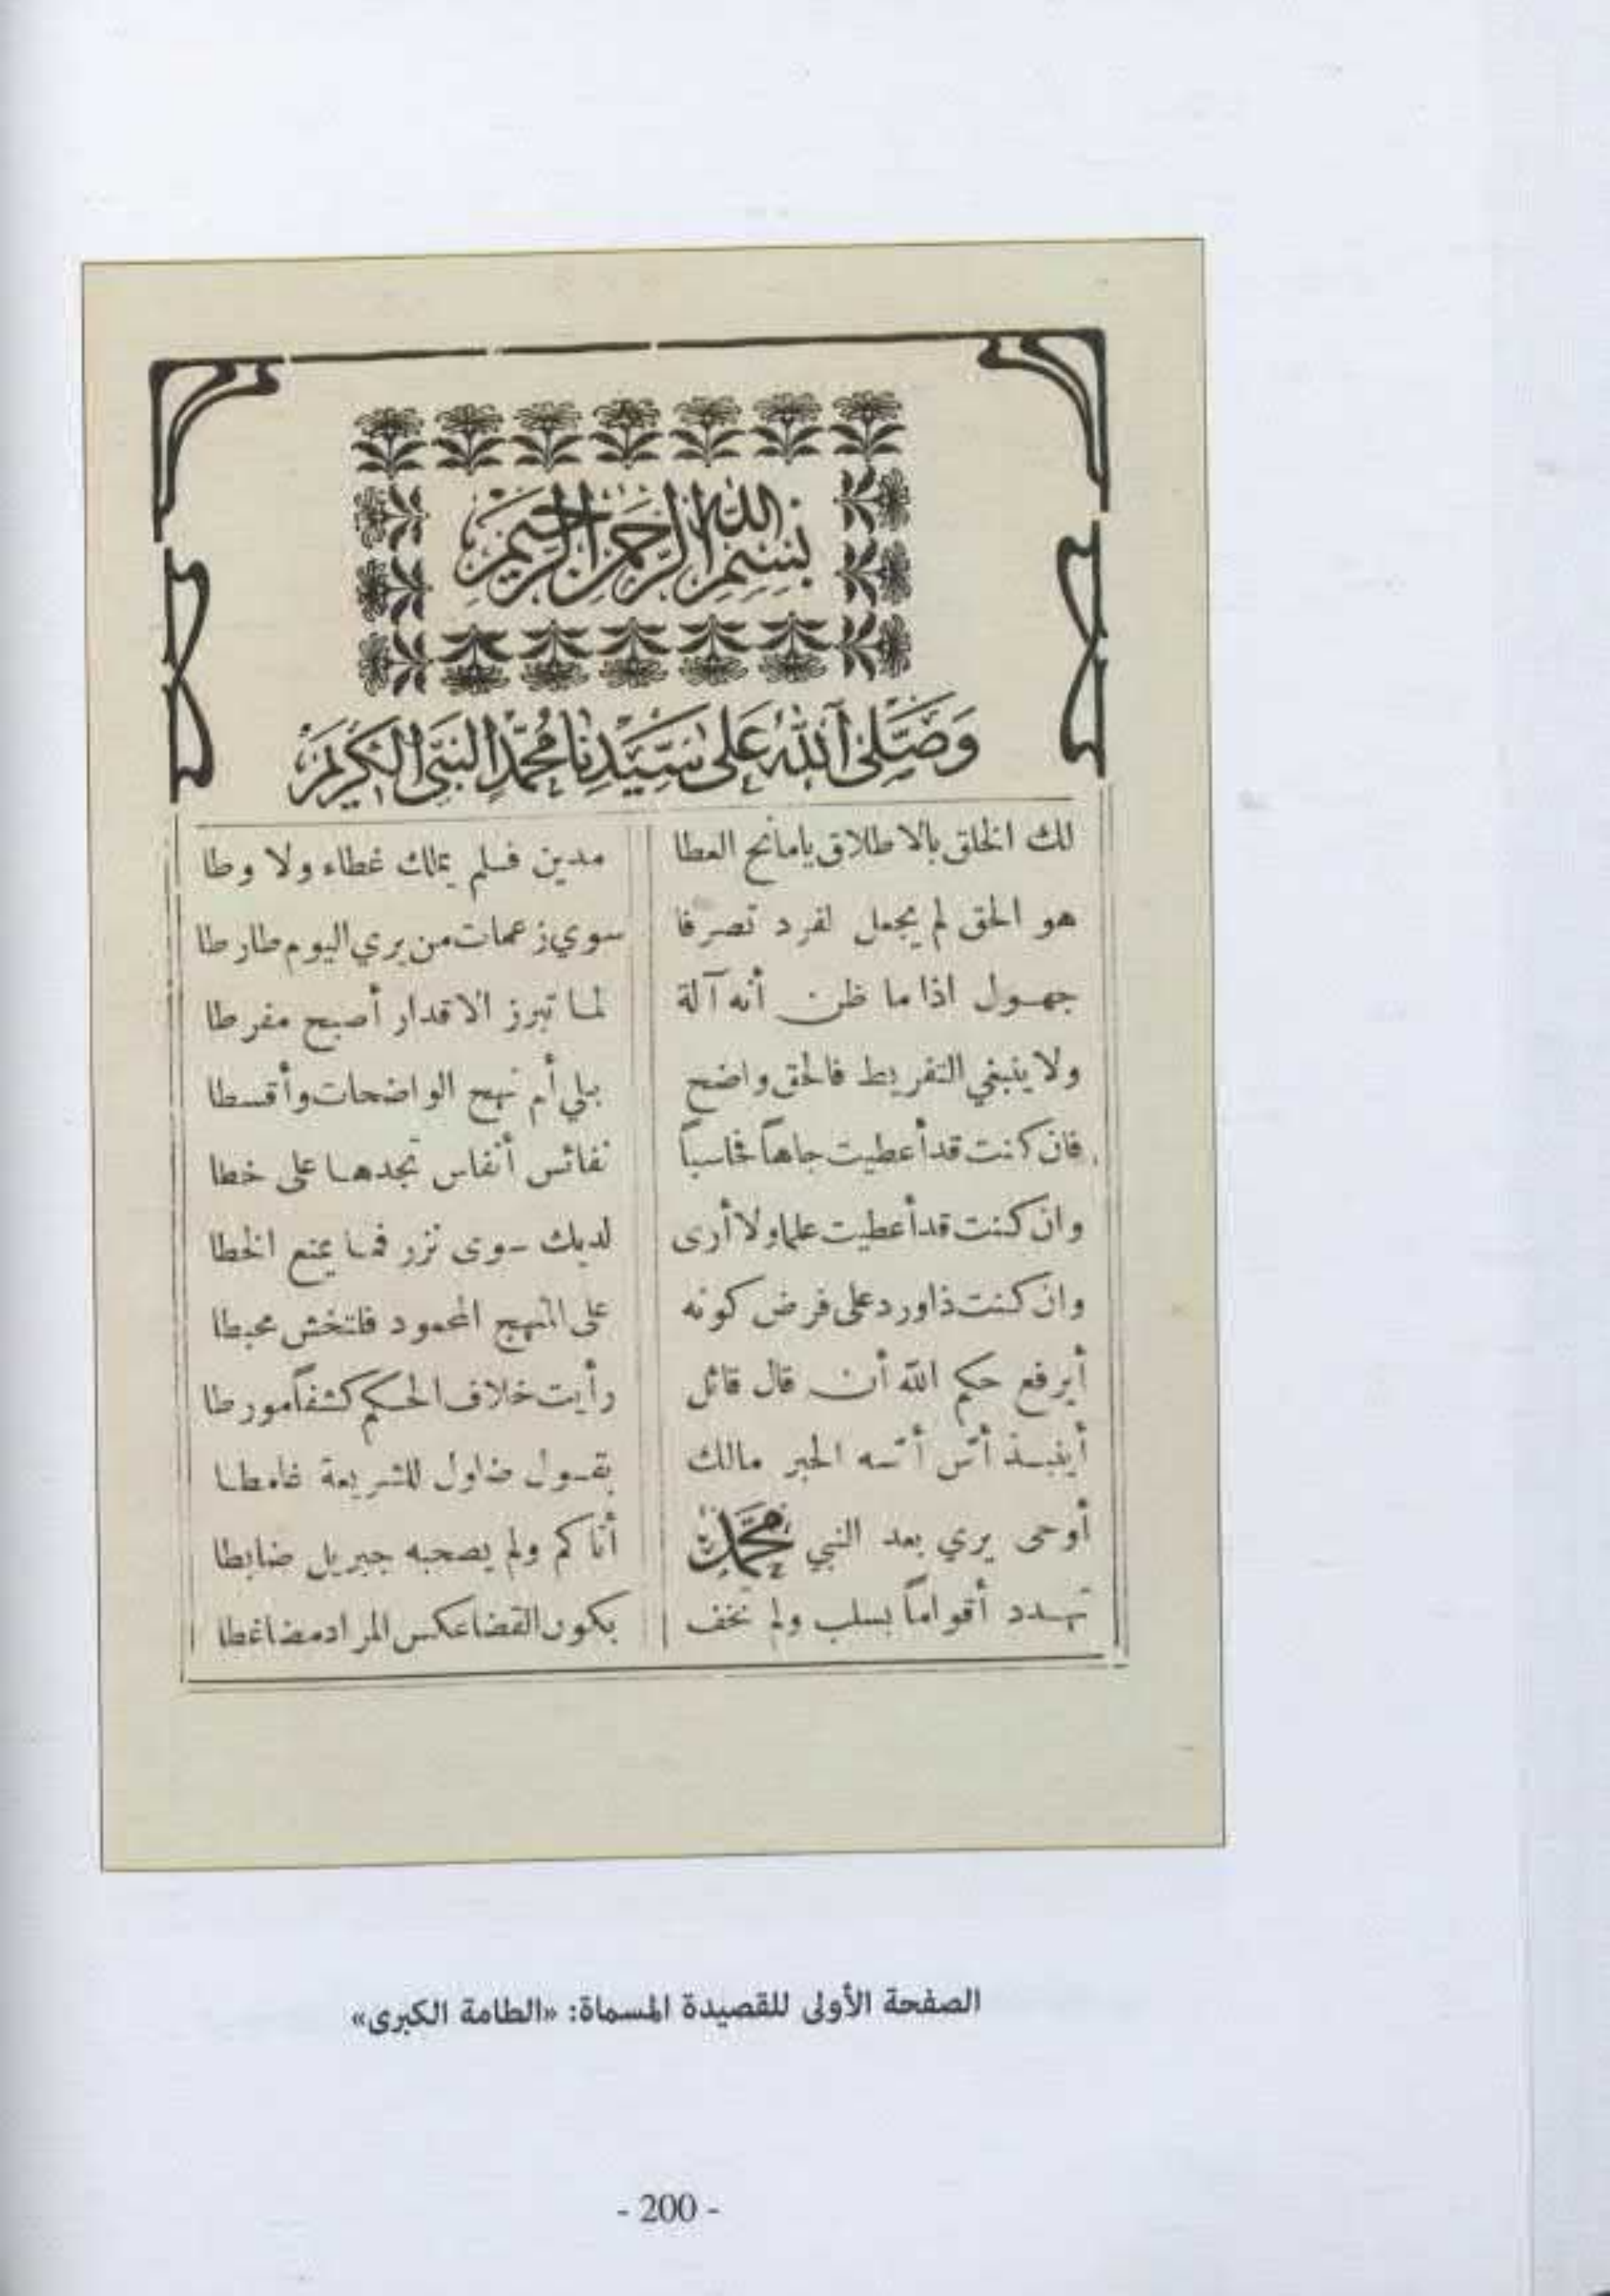 بِسْمِ اللهِ الرَّحْمنِ الرَّحِيمِ
وَصَلَّى اللهُ عَلى سَيِّدِنَا مُحَمَّدٍ النَّبِىِّ الْكَرِيمِ
لك الخلق بالاطلاق يامانح العطا مدين فلم يملك غطاء ولا وطا
هو الحق لم يجعل لفرد تصرفا سوي زعمات من يري اليوم طار طا
جهول اذا ما ظن أنه آلة لما تبرز الاقدار أصبح مفرطا
ولا ينبغي التفريط فالحق واضح بلي أم نهج الواضحات وأقسطا
فان كنت قد أعطيت جاها فحاسباً نفائس أنفاس تجدها على خطا
وان كنت قد أعطيت علما ولا أرى لديك سوى نزر فما يمنع الخطا
وان كنت ذا ورد على فرض كونه على المنهج المحمود فلتخش محبطا
أيرفع حكم الله أن قال قائل رأيت خلاف الحكم كشفاً مورطا
أينبذ أسّ أسّه الحبر مالك بقول ضاول للشريعة غامطا
أوحى يري بعد النبي مُحَمَّدٍ أتاكم ولم يصحبه جبريل ضابطا
تهدد أقواماً بسلب ولم تخف يكون القضا عكس المراد مضاغطا
الصفحة الأولى للقصيدة المسماة: «الطامة الكبرى»
- 200 -